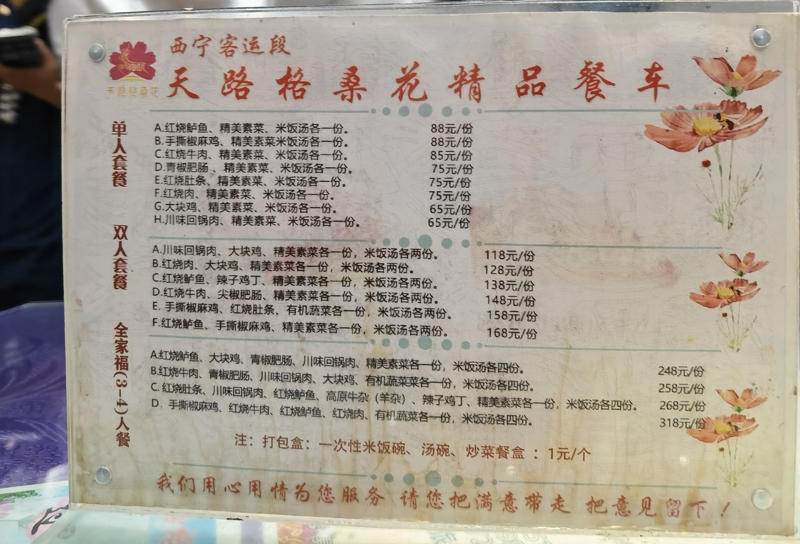 西宁客运段
天路格桑花
天路格桑花精品餐车
单人套餐
A.红烧鲈鱼、精美素菜、米饭汤各一份。 88元/份
B.手撕椒麻鸡、精美素菜米饭汤各一份。 88元/份
C.红烧牛肉、精美素菜、米饭汤各一份。 85元/份
D.青椒肥肠、精美素菜、米饭汤各一份。 75元/份
E.红烧肚条、精美素菜、米饭汤各一份。 75元/份
F.红烧肉、精美素菜、米饭汤各一份。 75元/份
G.大块鸡、精美素菜、米饭汤各一份。 65元/份
H.川味回锅肉、精美素菜、米饭汤各一份。 65元/份
双人套餐
A.川味回锅肉、大块鸡、精美素菜各一份，米饭汤各两份。 118元/份
B.红烧肉、大块鸡、精美素菜各一份，米饭汤各两份。 128元/份
C.红烧鲈鱼、辣子鸡丁、精美素菜各一份，米饭汤各两份。 138元/份
D.红烧牛肉、尖椒肥肠、精美素菜各一份，米饭汤各两份。 148元/份
E.手撕椒麻鸡、红烧肚条、有机蔬菜各一份，米饭汤各两份。 158元/份
F.红烧鲈鱼、手撕椒麻鸡、精美素菜各一份，米饭汤各两份。 168元/份
全家福(3-4)人餐
A.红烧鲈鱼、大块鸡、青椒肥肠、川味回锅肉、精美素菜各一份，米饭汤各四份。 248元/份
B.红烧牛肉、青椒肥肠、川味回锅肉、大块鸡、有机蔬菜菜各一份，米饭汤各四份。 258元/份
C.红烧肚条、川味回锅肉、红烧鲈鱼、高原牛杂（羊杂）、辣子鸡丁、精美素菜各一份，米饭汤各四份。 268元/份
D.手撕椒麻鸡、红烧牛肉、红烧鲈鱼、红烧肉、有机蔬菜各一份，米饭汤各四份。 318元/份
注：打包盒：一次性米饭碗、汤碗、炒菜餐盒：1元/个
我们用心用情为您服务 请您把满意带走 把意见留下！